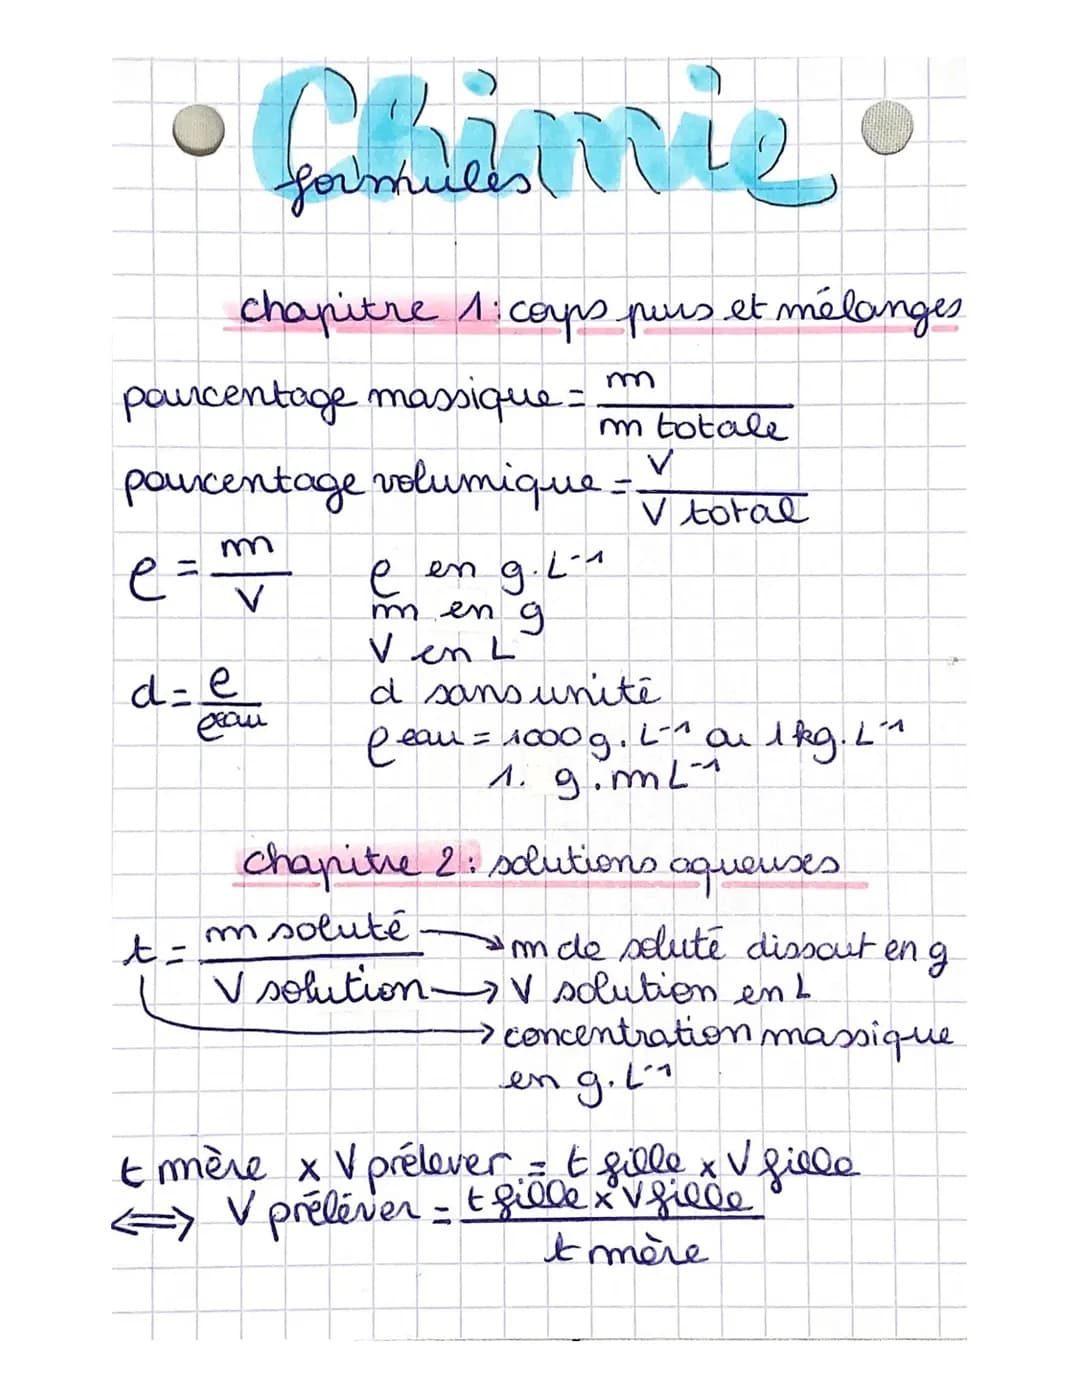 Chimie
formules
chapitre 1: corps purs et mélanges
pourcentage massique = m / m totale
pourcentage volumique = V / V total
ρ = m / V
ρ en g.L-1
m en g
V en L
d = ρ / ρeau
d sans unité
ρ eau = 1000 g. L-1 ou 1 kg. L-1
1. g. mL-1
chapitre 2: solutions aqueuses
t = m soluté / V solution
→ m de soluté dissout en g
→ V solution en L
→ concentration massique
en g. L-1
t mère x V prélever = t fille x V fille
⟺ V préléver = t fille x V fille / t mère